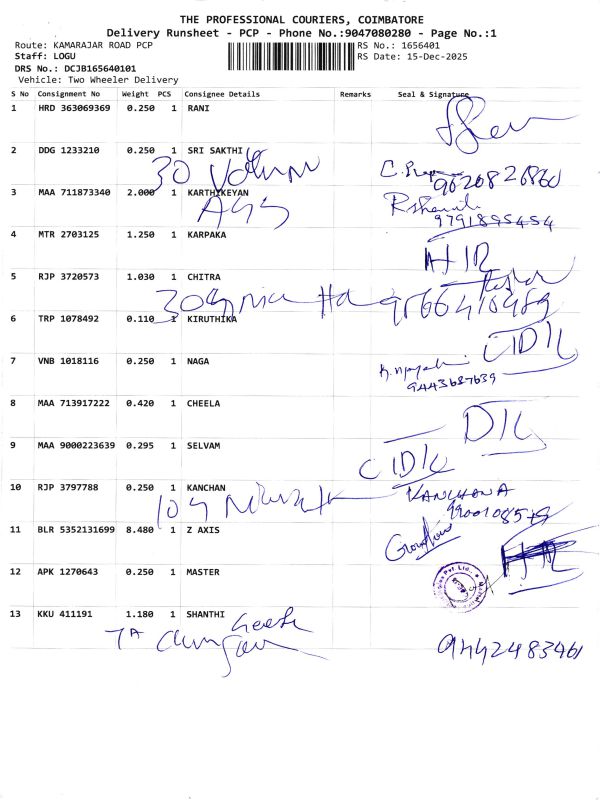 THE PROFESSIONAL COURIERS, COIMBATORE
Delivery Runsheet - PCP - Phone No.:9047080280 - Page No.:1
Route: KAMARAJAR ROAD PCP RS No.: 1656401
Staff: LOGU RS Date: 15-Dec-2025
DRS No.: DCJB165640101
Vehicle: Two Wheeler Delivery
S No Consignment No Weight PCS Consignee Details Remarks Seal & Signature
1 HRD 363069369 0.250 1 RANI
2 DDG 1233210 0.250 1 SRI SAKTHI
30
9620826860
3 MAA 711873340 2.000 1 KARTHIKEYAN
9791895454
4 MTR 2703125 1.250 1 KARPAKA
5 RJP 3720573 1.030 1 CHITRA
9566410489
6 TRP 1078492 0.110 1 KIRUTHIKA
7 VNB 1018116 0.250 1 NAGA
9443687639
8 MAA 713917222 0.420 1 CHEELA
9 MAA 9000223639 0.295 1 SELVAM
10 RJP 3797788 0.250 1 KANCHAN
KANCHANA
11 BLR 5352131699 8.480 1 Z AXIS
12 APK 1270643 0.250 1 MASTER
Pvt. Ltd.
13 KKU 411191 1.180 1 SHANTHI
9442483461